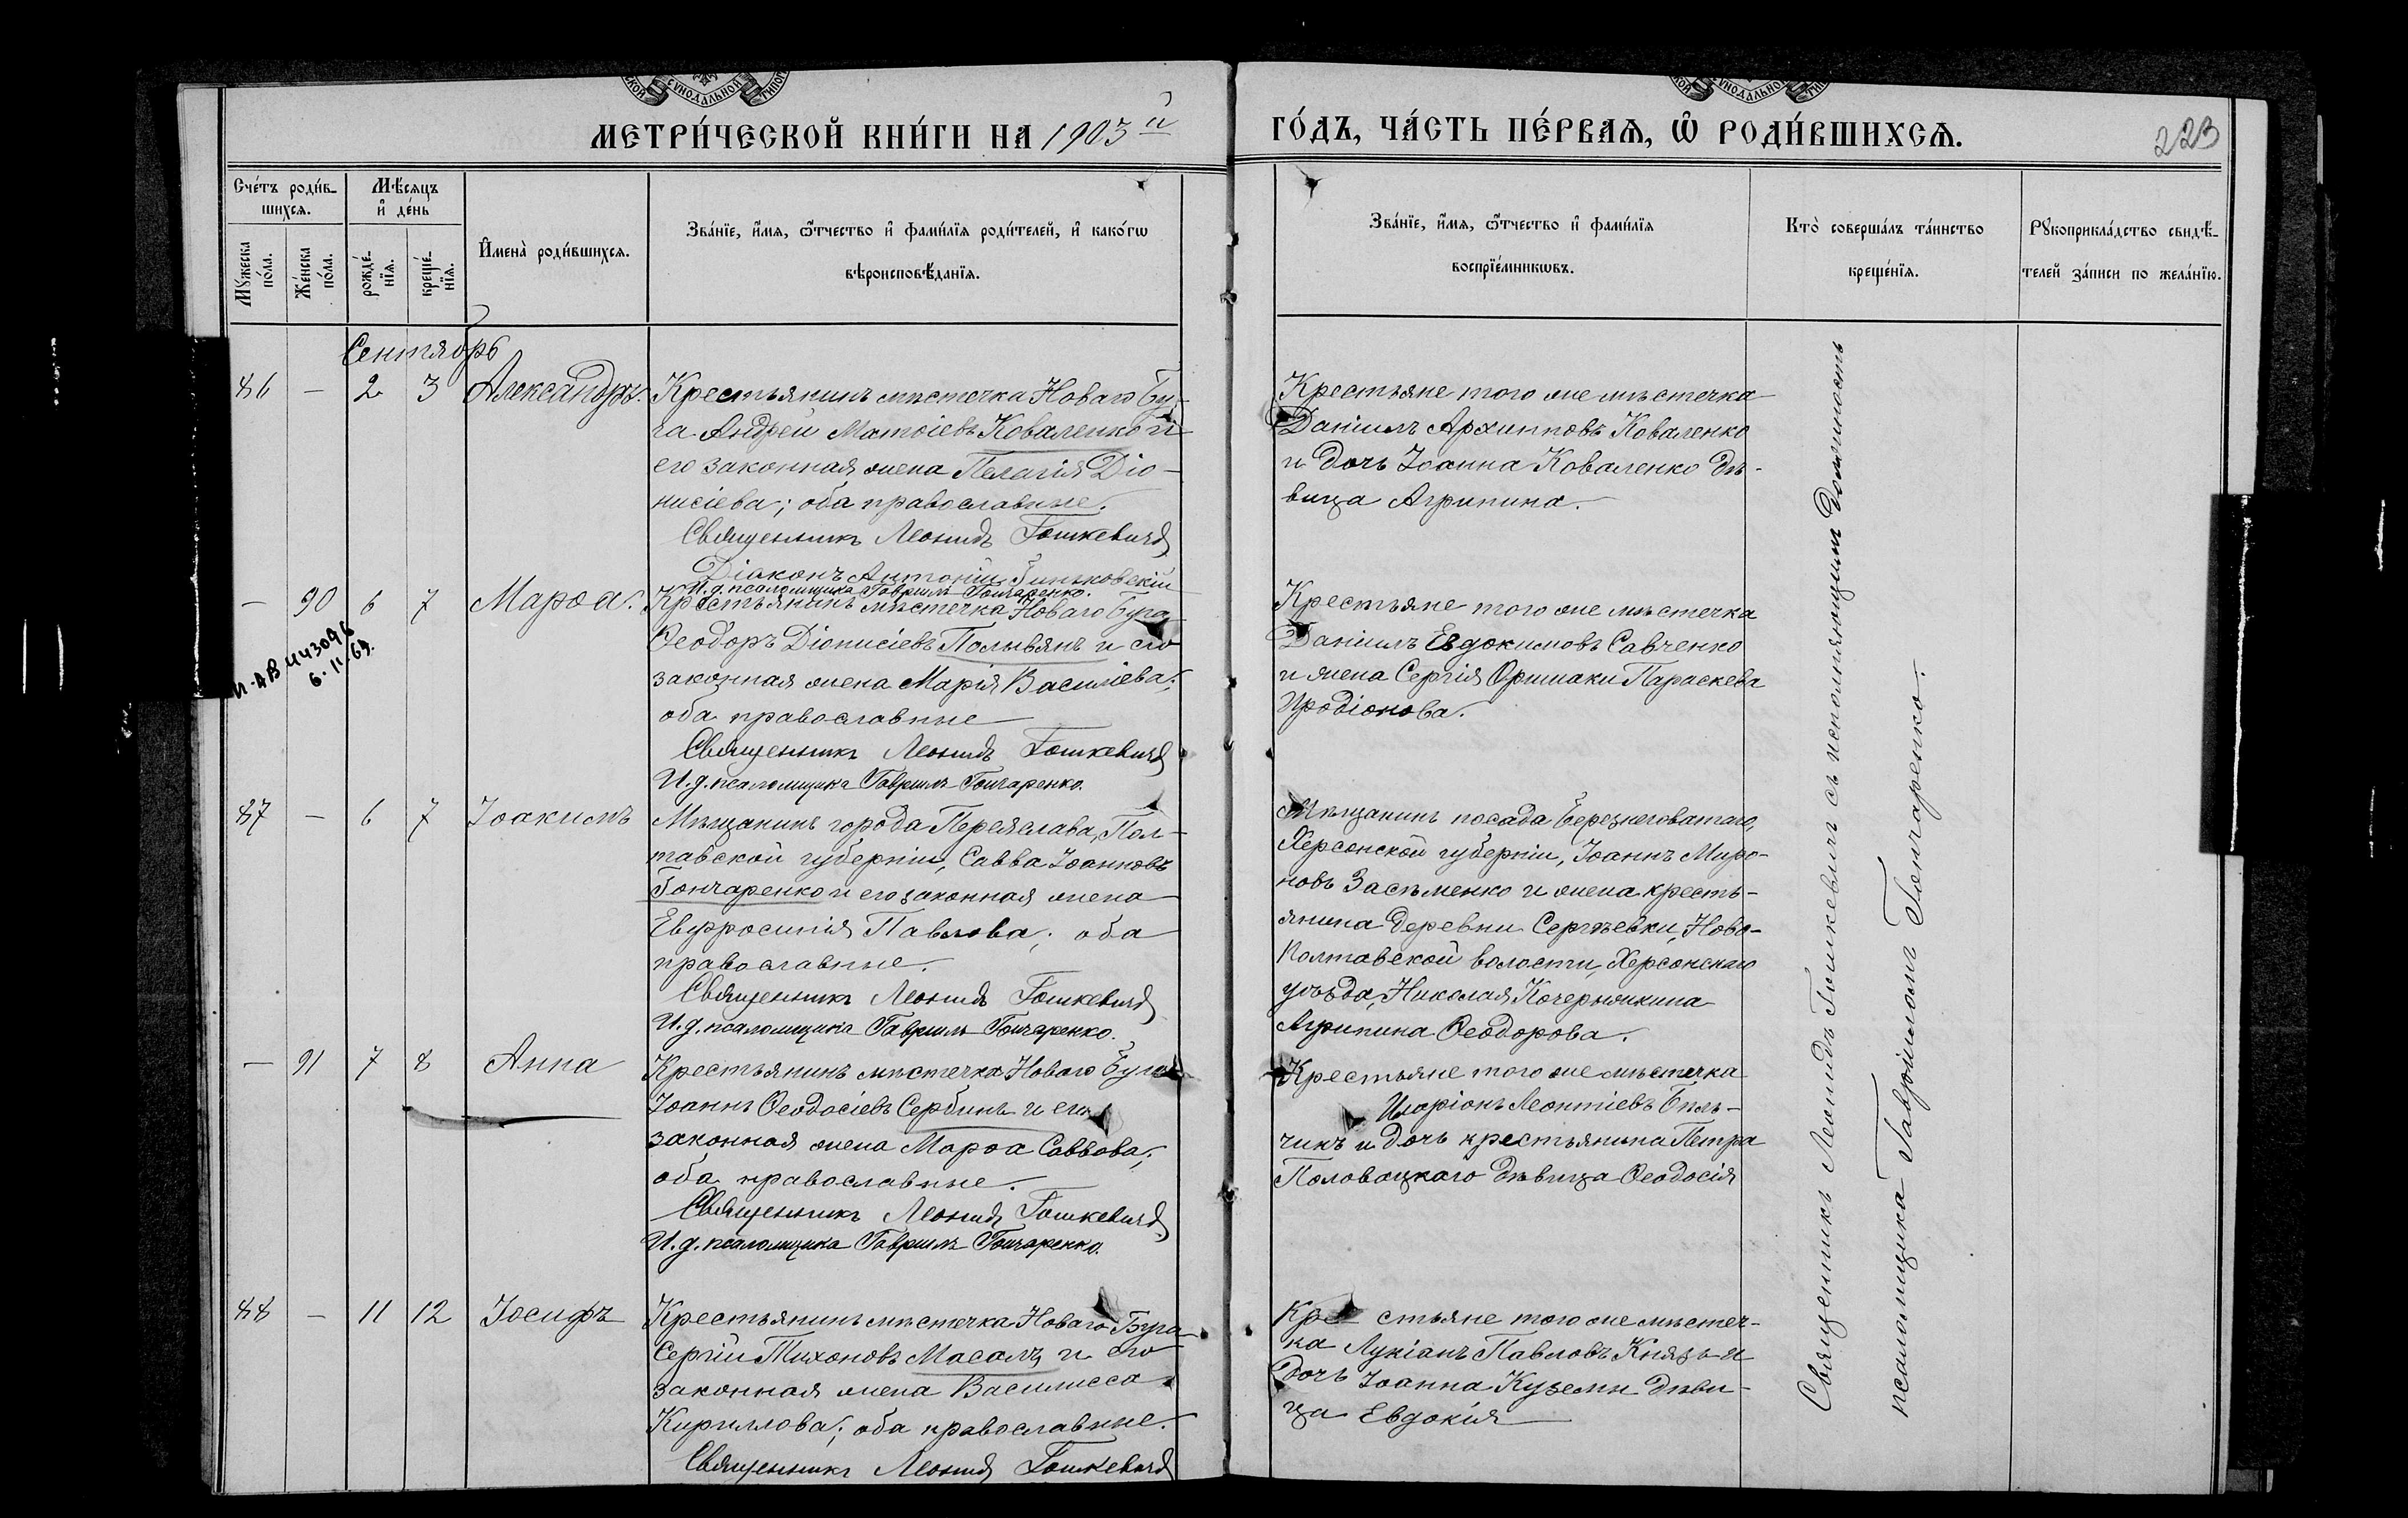 МЕТРИ́ЧЕСКОЙ КНИ́ГИ НА 1903 й
ГО́ДЪ, ЧА́СТЬ ПЕ́РВАѦ, Ѽ РОДИ́ВШИХСѦ.
223
Сче́тъ роди́в-
шихсѧ.
Мѣ́сѧцъ
и҆ де́нь
Мꙋ́жеска
по́ла.
Же́нска
по́ла.
рожде́-
нїѧ.
креще́-
нїѧ.
И҆мена̀ роди́вшихсѧ.
Зва́нїе, и҆́мѧ, ѻ҆́тчество и҆ фами́лїѧ роди́телей, и҆ како́гѡ
вѣроисповѣ́данїѧ.
Зва́нїе, и҆́мѧ, ѻ҆́тчество и҆ фами́лїѧ
воспрїе́мникѡвъ.
Кто̀ соверша́лъ та́инство
креще́нїѧ.
Рꙋкоприкла́дство свидѣ́-
телей за́писи по жела́нїю.
Сентябрь
86 — 2 3 Александръ.
Крестьянинъ мѣстечка Новаго Бу-
га Андрей Матѳіевъ Коваленко и
его законная жена Пелагія Діо-
нисіева; оба православные.
Священникъ Леонидъ Гошкевичъ
Діаконъ Антоній Гиньковскій
И.д. псаломщика Гавріилъ Гончаренко.
Крестьяне того же мѣстечка
Даніилъ Архипповъ Коваленко
и дочь Іоанна Коваленко дѣ-
вица Агрипина.
— 90 6 7 Марѳа.
6.11.69.
Крестьянинъ мѣстечка Новаго Буга
Ѳеодоръ Діонисіевъ Полывянъ и его
законная жена Марія Василіева;
оба православные
Священникъ Леонидъ Гошкевичъ
И.д. псаломщика Гавріилъ Гончаренко.
Крестьяне того же мѣстечка
Даніилъ Евдокимовъ Савченко
и жена Сергія Оришаки Параскева
Иродіонова.
87 — 6 7 Іоакимъ
Мѣщанинъ города Переяслава, Пол-
тавской губерніи, Савва Іоанновъ
Гончаренко и его законная жена
Евфросинія Павлова; оба
православные.
Священникъ Леонидъ Гошкевичъ
И.д. псаломщика Гавріилъ Гончаренко.
Мѣщанинъ посада Березнеговатаго,
Херсонской губерніи, Іоаннъ Миро-
новъ Засѣменко и жена кресть-
янина деревни Сергѣевки, Ново-
Полтавской волости, Херсонскаго
уѣзда, Николая Кочерыжкина
Агрипина Ѳеодорова.
— 91 7 8 Анна
Крестьянинъ мѣстечка Новаго Буга
Іоаннъ Ѳеодосіевъ Сербинъ и его
законная жена Марѳа Саввова;
оба православные.
Священникъ Леонидъ Гошкевичъ
И.д. псаломщика Гавріилъ Гончаренко.
Крестьяне того же мѣстечка
Иларіонъ Леонтіевъ Бѣль-
чикъ и дочь крестьянина Петра
Половецкаго дѣвица Ѳеодосія
88 — 11 12 Іосифъ
Крестьянинъ мѣстечка Новаго Буга
Сергій Тихоновъ Масалъ и его
законная жена Василисса
Кириллова; оба православные.
Священникъ Леонидъ Гошкевичъ
Крестьяне того же мѣстеч-
ка Лукіанъ Павловъ Князь и
дочь Іоанна Куземы дѣви-
ца Евдокія
Священникъ Леонидъ Гошкевичъ съ исполняющимъ должность
псаломщика Гавріиломъ Гончаренко.